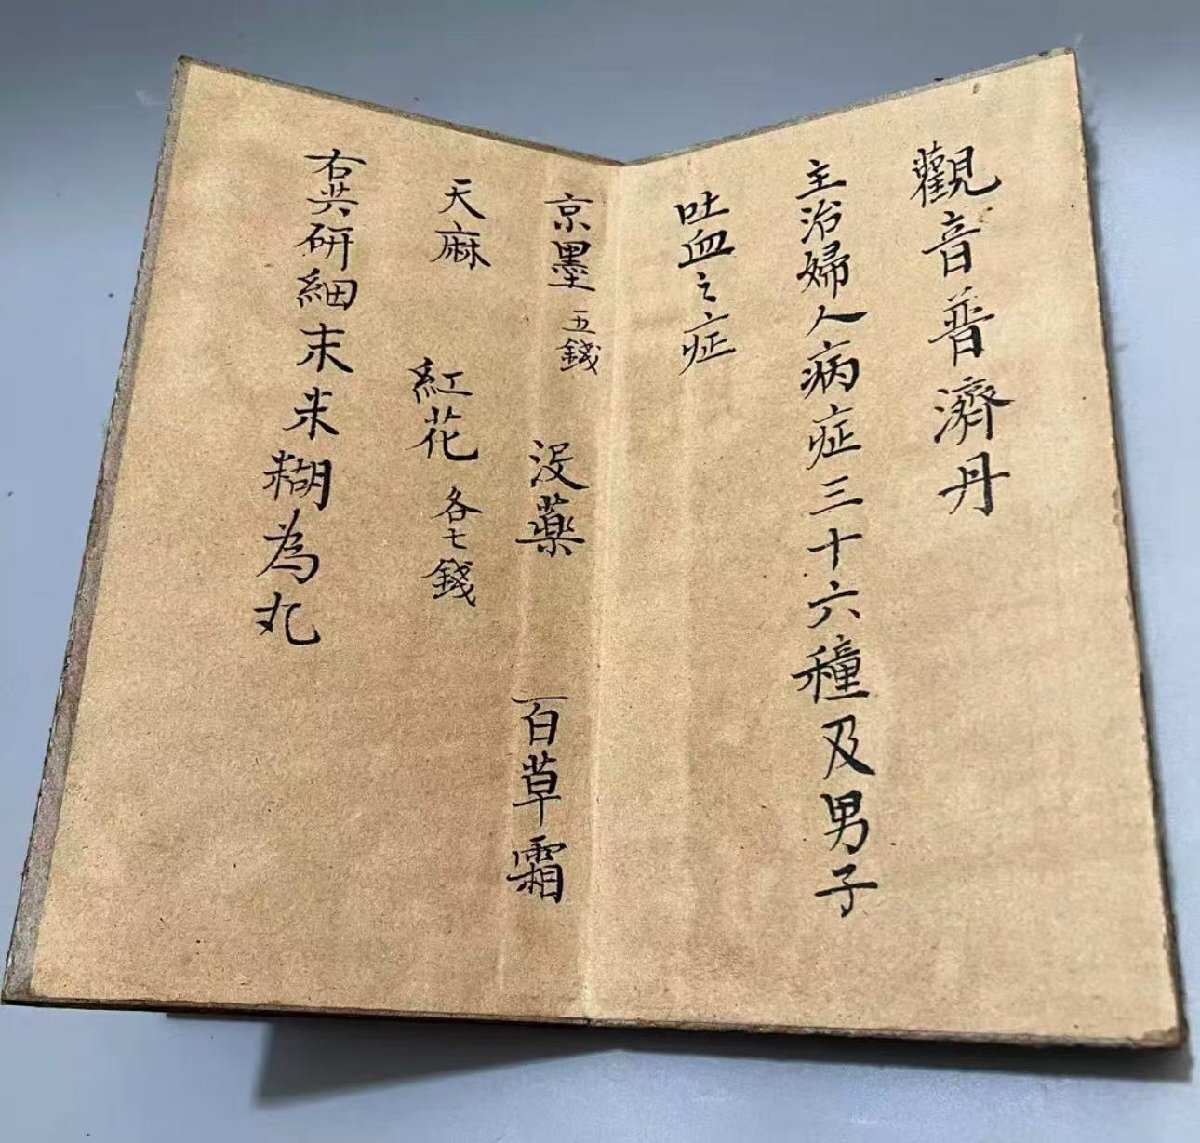 觀音普濟丹
主治婦人病症三十六種及男子
吐血之症
京墨五錢 沒藥 百草霜
天麻 紅花各七錢
右共研細末米糊為丸